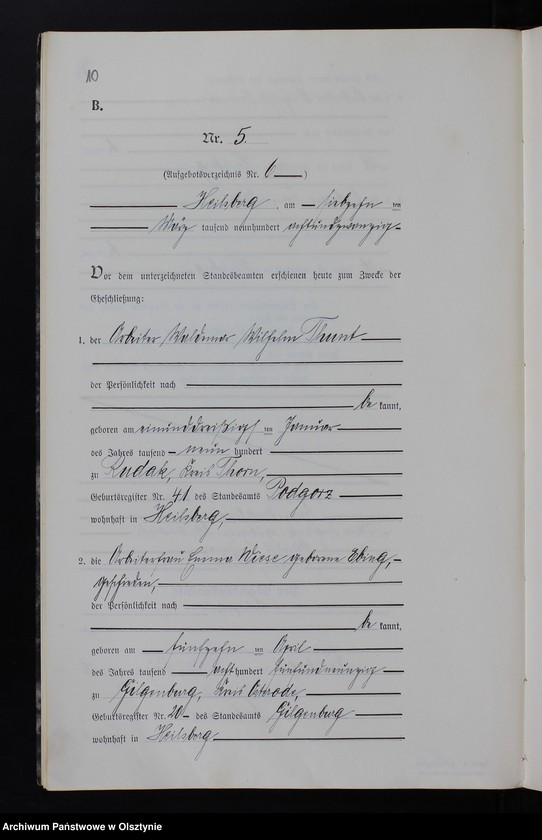 10
B.
Nr. 5.
(Aufgebotsverzeichnis Nr. 6)
Heilsberg, am siebzehn ten
März tausend neunhundert achtundzwanzig
Vor dem unterzeichneten Standesbeamten erschienen heute zum Zwecke der
Eheschließung:
1. der Arbeiter Waldemar Wilhelm Thunt
der Persönlichkeit nach
be kannt,
geboren am einunddreißigst ten Januar
des Jahres tausend neun hundert
zu Rudak, Kreis Thorn,
Geburtsregister Nr. 41 des Standesamts Podgorz
wohnhaft in Heilsberg,
2. die Arbeiterfrau Emma Wiese geborene Ebing,
geschieden,
der Persönlichkeit nach
be kannt,
geboren am fünfzehn ten April
des Jahres tausend acht hundert fünfundneunzig
zu Gilgenburg, Kreis Osterode,
Geburtsregister Nr. 20 des Standesamts Gilgenburg
wohnhaft in Heilsberg
Archiwum Państwowe w Olsztynie